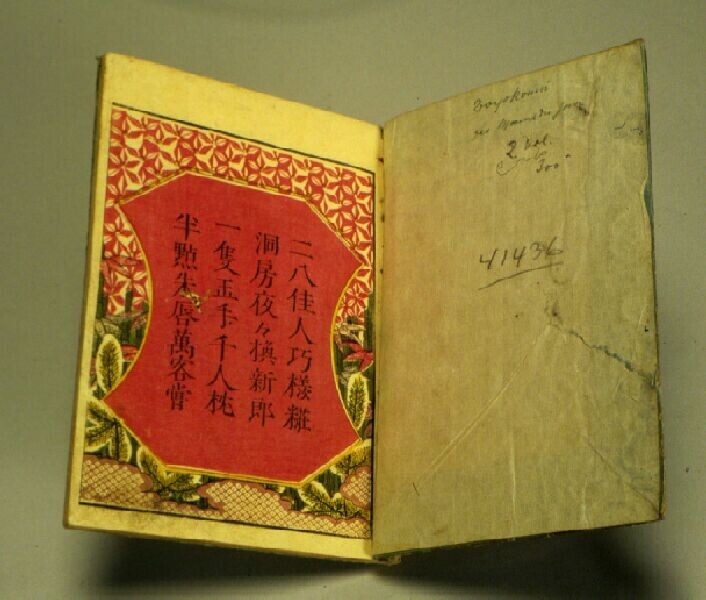 二八佳人巧樣粧
洞房夜々換新郎
一隻玉手千人枕
半點朱唇萬客嘗
2 Vol.
41436